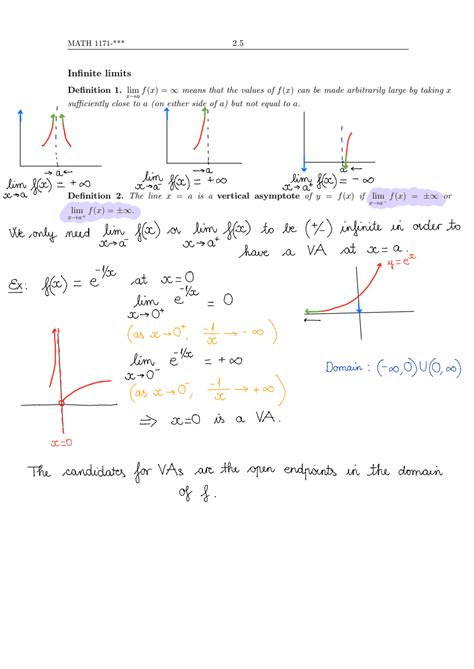 MATH 1171-*** 2.5
Infinite limits
Definition 1. lim x→a f(x) = ∞ means that the values of f(x) can be made arbitrarily large by taking x
sufficiently close to a (on either side of a) but not equal to a.
→ a ←
→ a
a ←
lim x→a f(x) = +∞
lim x→a⁻ f(x) = +∞
lim x→a⁺ f(x) = -∞
Definition 2. The line x = a is a vertical asymptote of y = f(x) if lim x→a⁻ f(x) = ±∞ or
lim x→a⁺ f(x) = ±∞.
We only need lim x→a⁻ f(x) or lim x→a⁺ f(x) to be (+/-) infinite in order to
have a VA at x = a.
y = eˣ
Ex: f(x) = e^(-1/x) at x = 0
lim x→0⁺ e^(-1/x) = 0
(as x→0⁺, -1/x → -∞)
lim x→0⁻ e^(-1/x) = +∞
Domain: (-∞, 0) ∪ (0, ∞)
(as x→0⁻, -1/x → +∞)
⟹ x=0 is a VA.
x=0
The candidates for VAs are the open endpoints in the domain
of f.